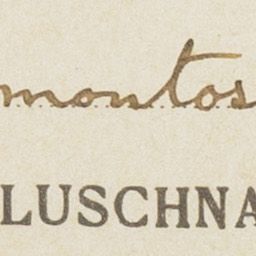 montos
LUSCHNA